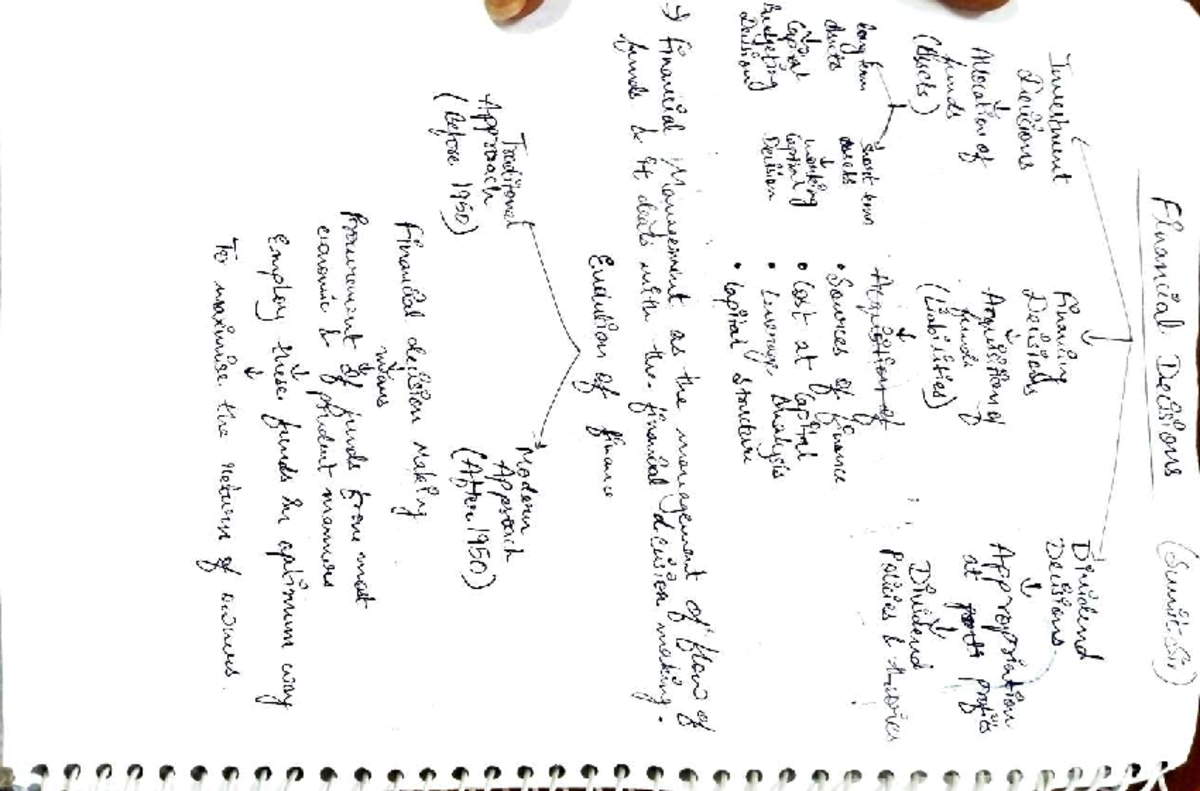 Financial Decisions
(Sumit Sir)
Investment
Decisions
Allocation of
funds
(Assets)
long term
assets
Capital
Budgeting
Decision
short term
assets
working
Capital
Decision
Financing
Decisions
Acquisition of
funds
(Liabilities)
Acquisition of
• Sources of finance
• Cost at Capital
• Leverage Analysis
• Capital Structure
Dividend
Decisions
Appropriation
at profits
Dividend
Policies & theories
→ Financial Management as the management of flow of
funds & it deals with the financial decision making.
Evolution of finance
Traditional
Approach
(Before 1950)
Modern
Approach
(After 1950)
Financial decision making
means
Procurement of funds from most
economic & prudent manners
Employ these funds in optimum way
To maximise the returns of owners.